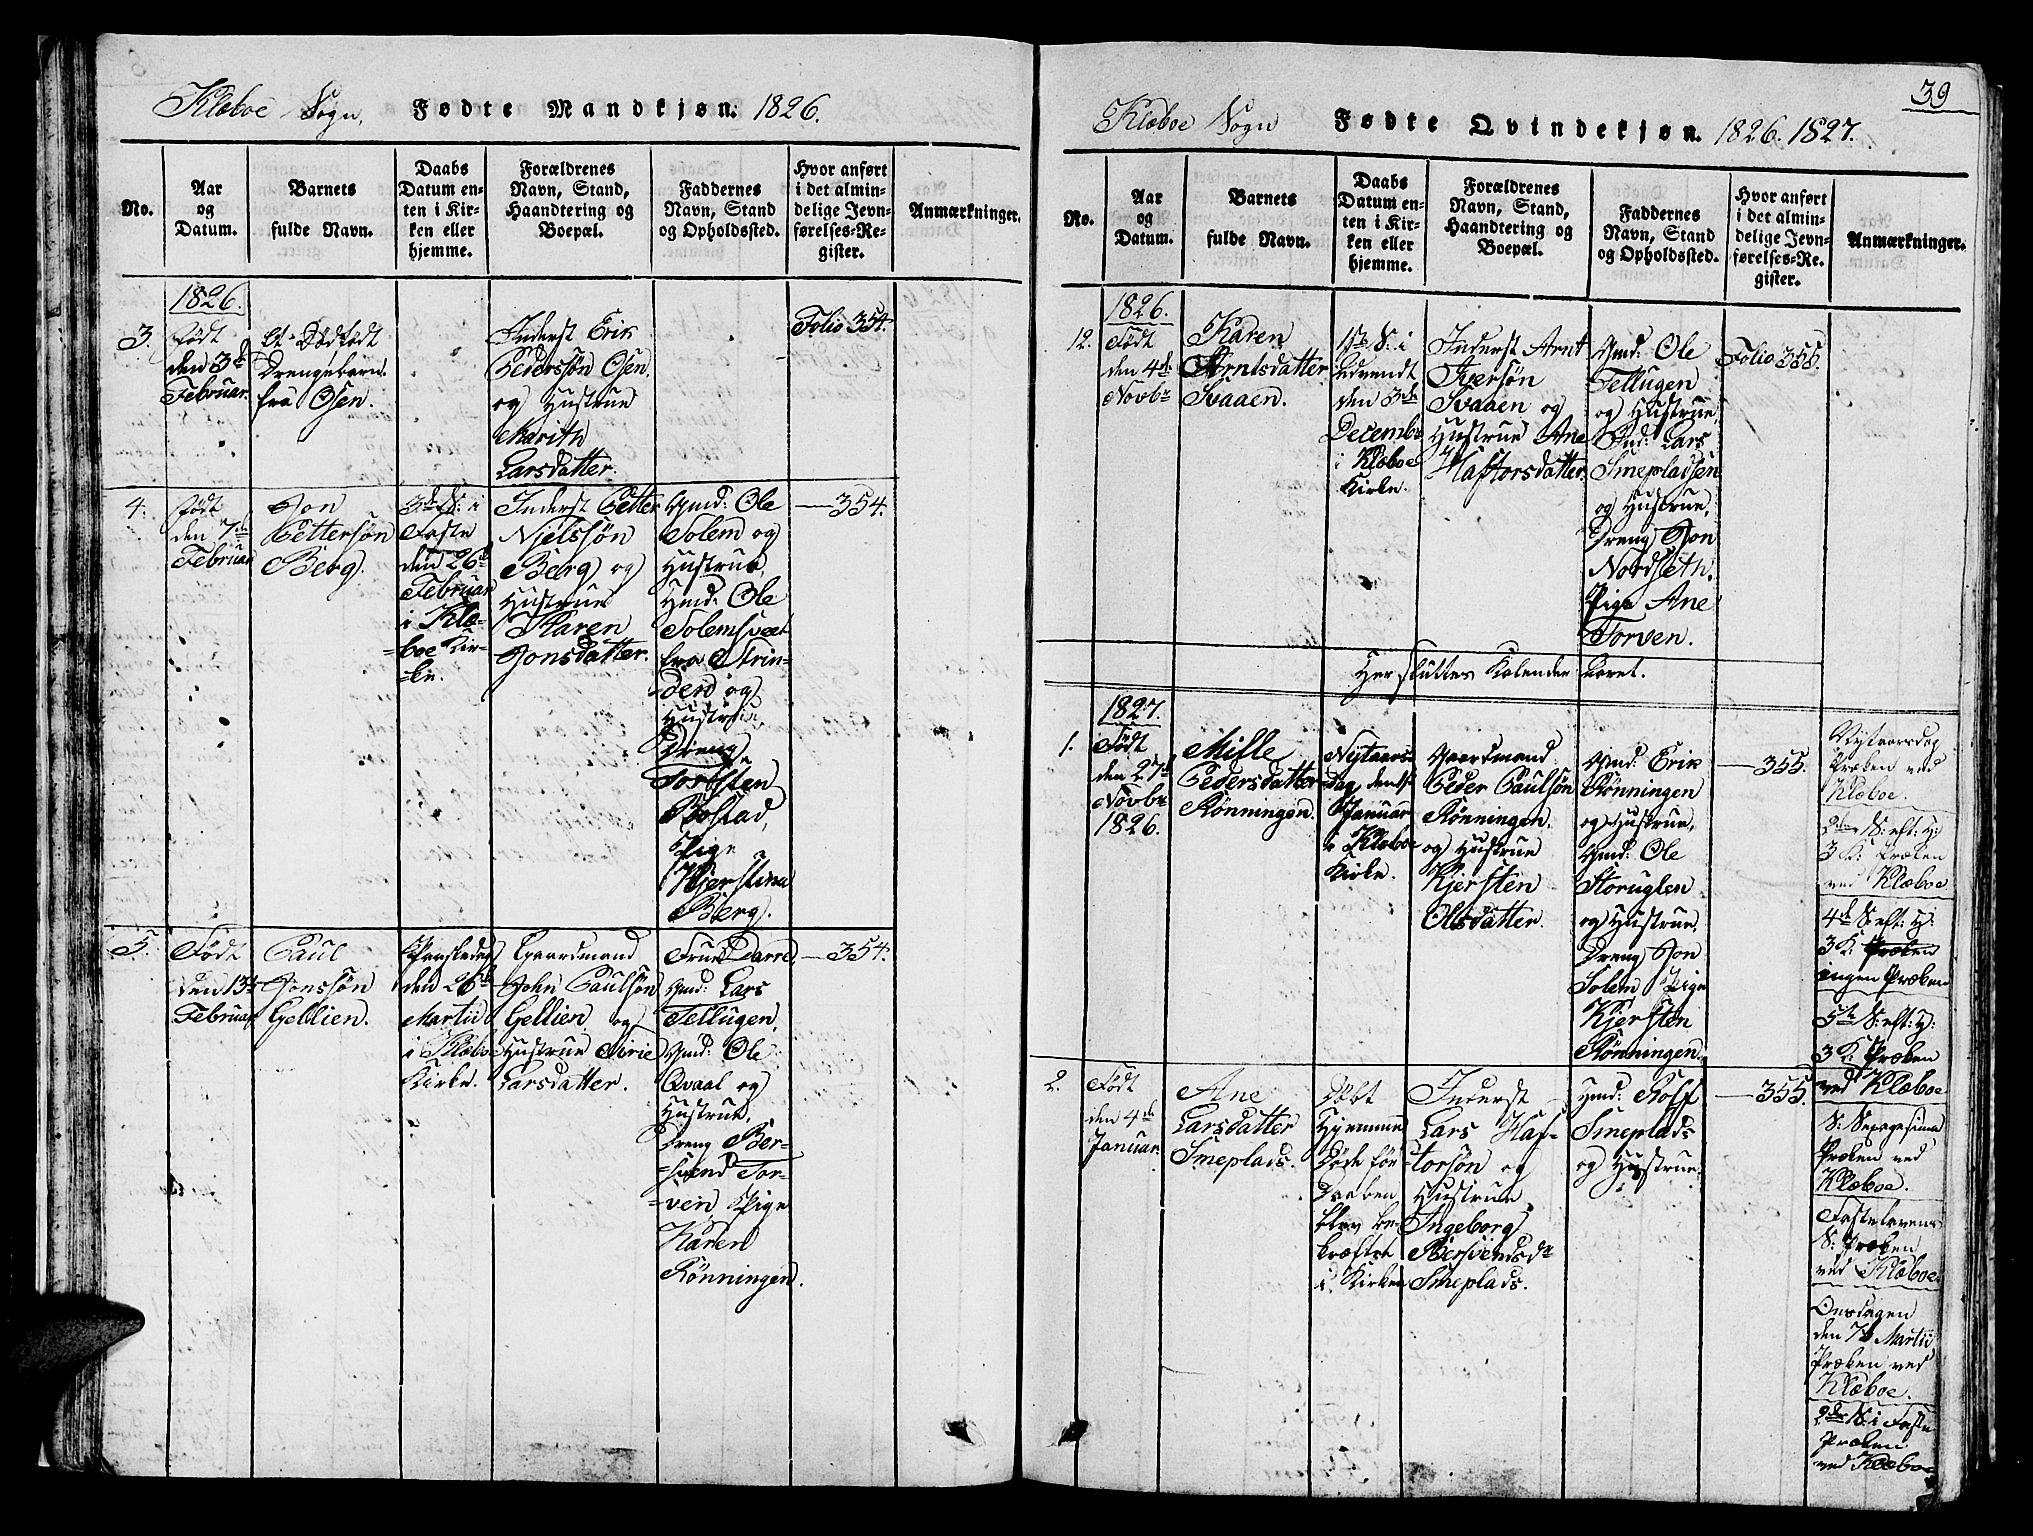 Klæboe Sogn. Fødte Mandkjøn: 1826.
No.
Aar
og
Datum.
Barnets
fulde Navn.
Daabs
Datum en-
ten i Kir-
ken eller
hjemme.
Forældrenes
Navn, Stand,
Haandtering og
Boepæl.
Faddernes
Navn, Stand
og Opholdssted.
Hvor anført
i det almin-
delige Jevn-
førelses-Re-
gister.
Anmærkninger.
1826.
3.
Født
den 3de
Februar.
Et Dødfødt
Drengebarn
fra Osen.
Inderst Erik
Pedersøn Osen
og Hustrue
Marith
Larsdatter.
Folio 354.
4.
Født
den 7de
Februar
Jon
Pettersøn
Berg.
3die S: i
Faste
den 26de
Februar
i Klæ-
boe Kir-
ke.
Inderst Petter
Njelssøn
Berg og
Hustrue
Karen
Jonsdatter.
Gmd: Ole
Solem og
Hustrue,
Hmd: Ole
Solemsvedt
fra Strin-
den og
Hustrue,
Dreng
Torsten
Bostad,
Pige
Kjerstina
Berg.
— 354.
5.
Født
den 13de
Februar
Paul
Jonssøn
Gellien.
Paaskedag
den 26de
Martii
i Klæboe
Kirke.
Gaardmand
John Paulsøn
Gellien og
Hustrue Sirie
Larsdatter.
Frue Darre,
Gmd: Lars
Tellugen,
Gmd: Ole
Qvaal og
Hustrue,
Dreng Ber-
svend Tor-
ven, Pige
Karen
Rønningen.
— 354.
39
Klæboe Sogn Fødte Qvindekjøn. 1826. 1827.
No.
Aar
og
Datum.
Barnets
fulde Navn.
Daabs
Datum en-
ten i Kir-
ken eller
hjemme.
Forældrenes
Navn, Stand,
Haandtering og
Boepæl.
Faddernes
Navn, Stand
og Opholdssted.
Hvor anført
i det almin-
delige Jevn-
førelses-Re-
gister.
Anmærkninger.
1826.
12.
Født
den 4de
Novbr
Karen
Arntsdatter
Svaaen.
1ste S: i
Advendt
den 3de
Decembr
i Klæboe
Kirke.
Inderst Arnt
Iversøn
Svaaen og
Hustrue Ane
Haftorsdatter.
Gmd: Ole
Tellugen
og Hustrue,
Ind: Lars
Smepladsen
og Hustrue,
Dreng Jon
Nordseth.
Pige Ane
Torven.
Folio 355.
Her sluttes Kalender Aaret.
1827.
1.
Født
den 27de
Novbr
1826.
Mille
Pedersdatter
Rønningen.
Nytaars
Dag den 1ste
Januar
i Klæboe
Kirke.
Gaardmand
Peder Paulsøn
Rønningen.
og Hustrue
Kjersten
Olsdatter.
Gmd: Erik
Rønningen
og Hustrue,
Gmd: Ole
Storuglen
og Hustrue,
Dreng Jon
Solem Pige
Kjersten
Rønningen.
— 355.
Nytaarsdag
Præken ved
Klæboe.
2den S: eft: H:
3 K: Præken
ved Klæboe
4de S: eft: H:
3 K: Præken
ingen Præken
5te S: eft: H:
3 K: Præken
ved Klæboe
S: Sexagesima
Præken ved
Klæboe.
Fastelavens
S: Præken
ved Klæboe.
Onsdagen
den 7de Martii
Præken ved
Klæboe.
2den S: i Faste
Præken
ved Klæboe
2.
Født
den 4de
Januar.
Ane
Larsdatter
Smeplads.
Døbt
Hjemme
Døde før
Daaben
blev be-
kræftet
i Kirken
Inderst
Lars Haf-
torsøn og
Hustrue
Ingeborg
Bersvendsdr
Smeplads.
Hmd: Rolf
Smeplads
og Hustrue
— 355.